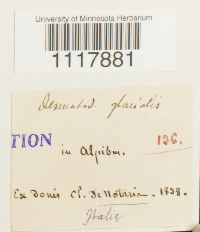 University of Minnesota Herbarium
1117881
Desmatod. glacialis
TION
136.
in Alpibus.
Ex Donis Cl. DeNotaris. 1838.
Italie